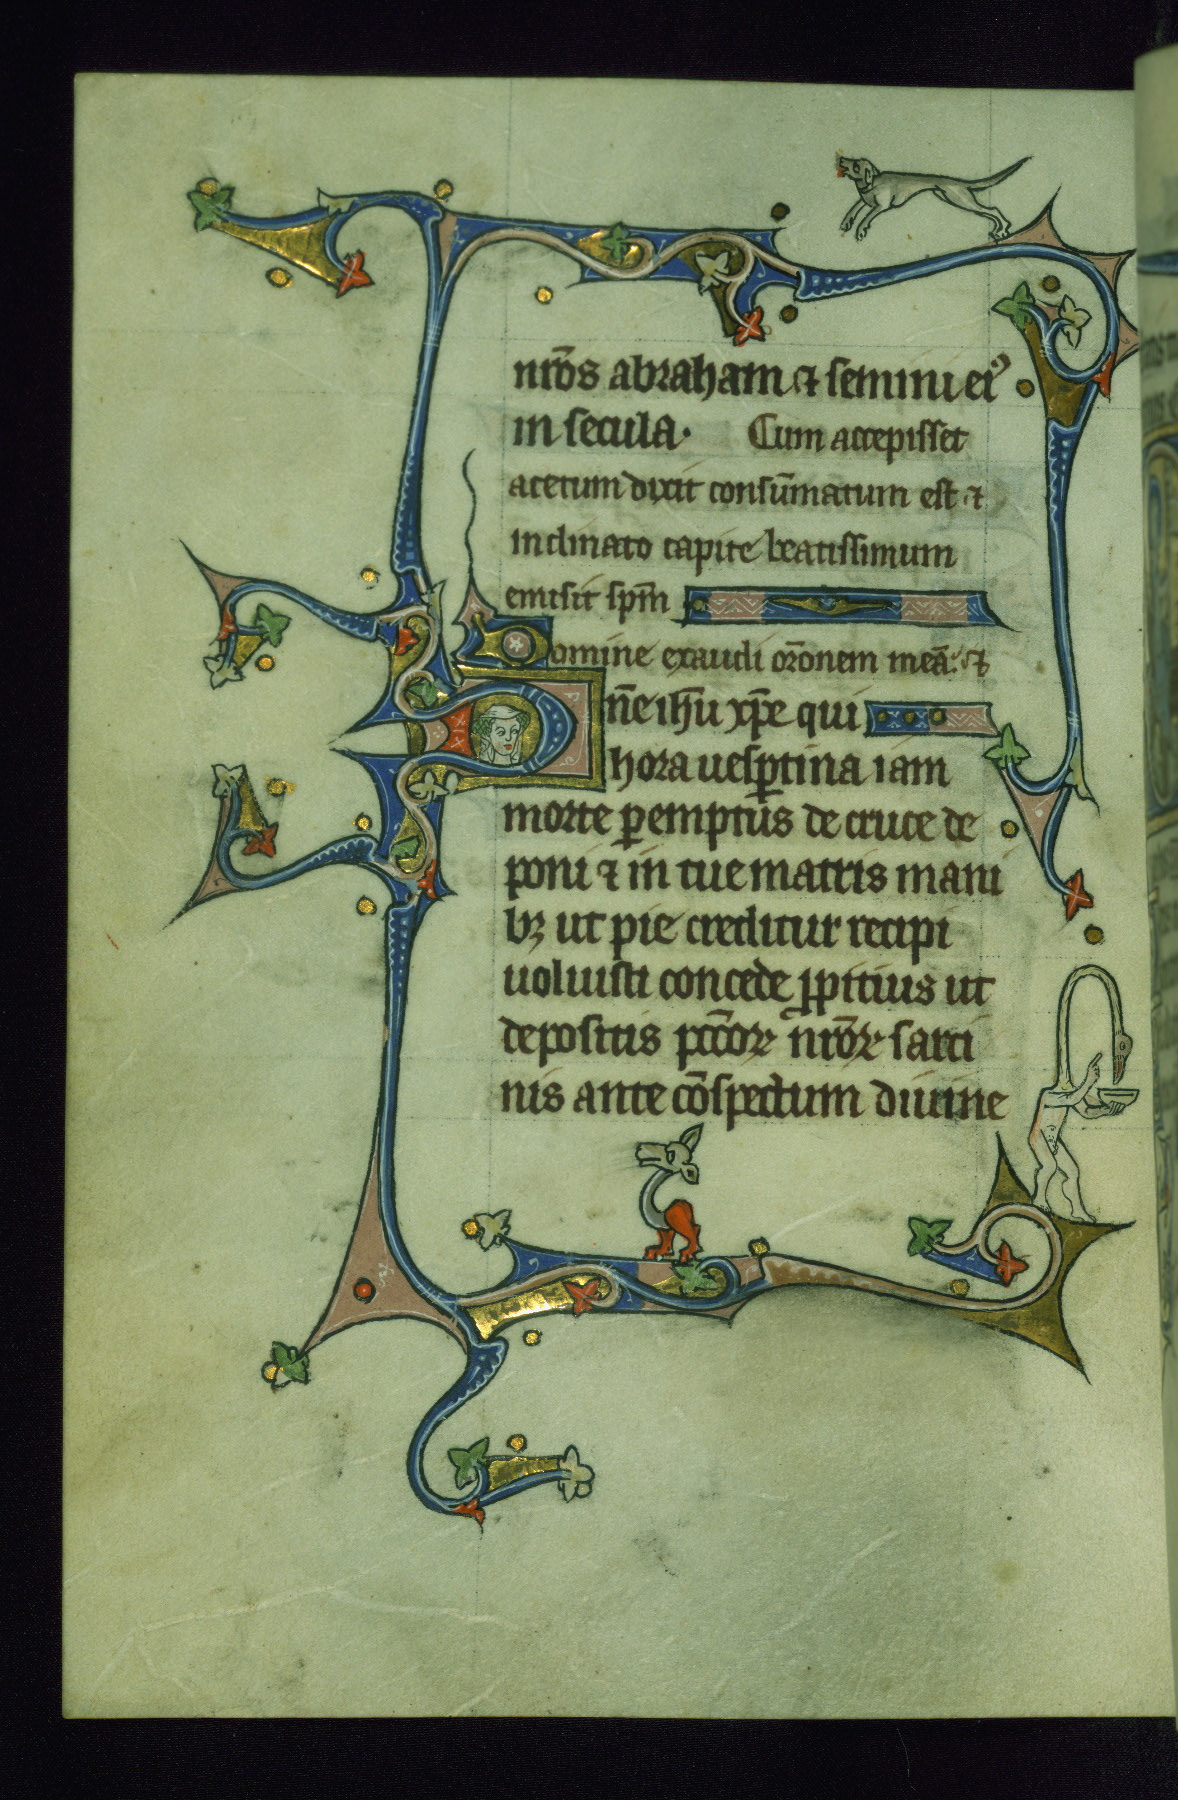 nr̄os abraham ⁊ semini ei⁹
in secula. Cum accepisset
acetum dixit consūmatum est ⁊
inclinato capite beatissimum
emisit sp̄m
Domine exaudi or̄onem meā: ⁊
Dn̄e ih̄u xp̄e qui
hora uesꝑtina iam
morte ꝑemptus de cruce de
poni ⁊ in tue matris mani
bꝫ ut pie creditur recipi
uoluisti concede ꝓpitius ut
depositis pc̄c̄oꝝ nr̄oꝝ sarci
nis ante cōspectum diuine